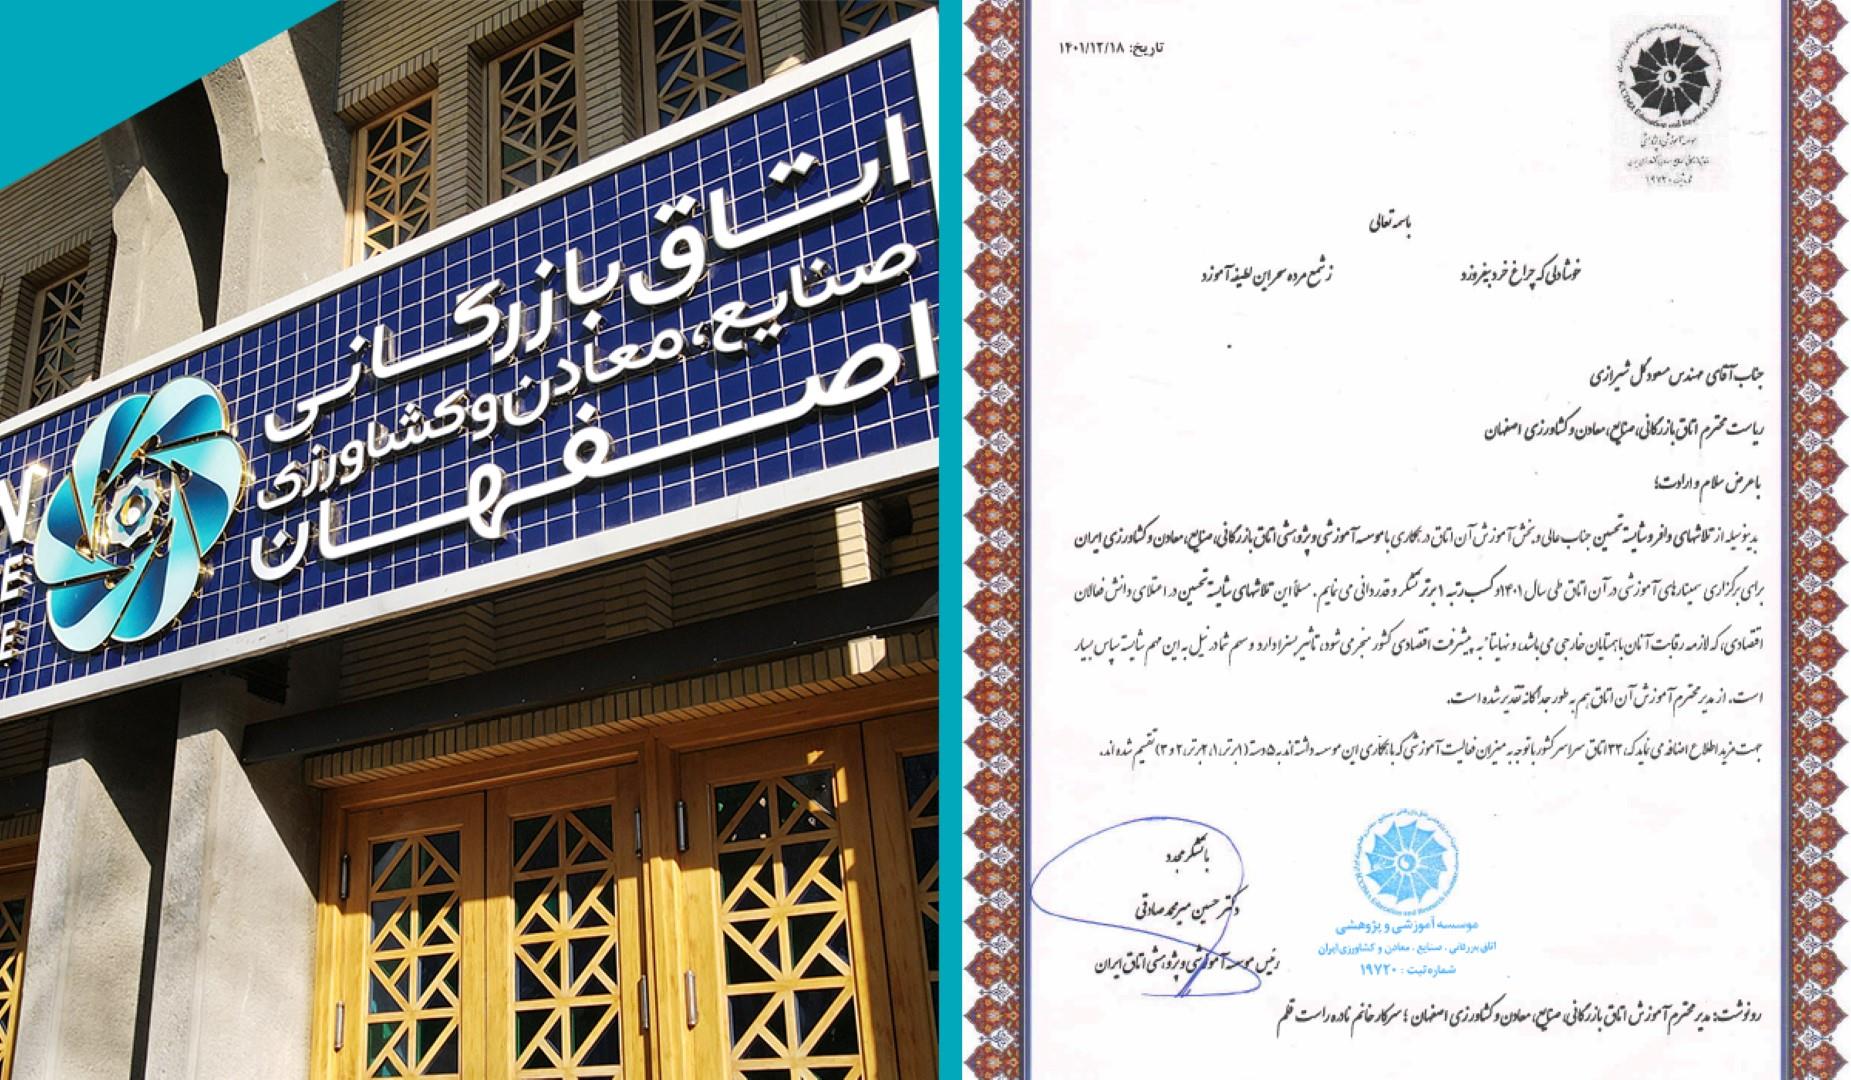 اتاق بازرگانی
صنایع، معادن و کشاورزی
اصفهان
تاریخ: ۱۴۰۱/۱۲/۱۸
Education and Research
شماره ثبت ۱۹۷۲۰
باسمه تعالی
خوشا دلی که چراغ خرد بیفروزد
ز شمع مرده سحر این لطیفه آموزد
جناب آقای مهندس مسعود گل شیرازی
ریاست محترم اتاق بازرگانی، صنایع، معادن و کشاورزی اصفهان
با عرض سلام و ارادت؛
بدینوسیله از تلاشهای وافر و شایسته تحسین جناب عالی و بخش آموزش آن اتاق در همکاری با موسسه آموزشی و پژوهشی اتاق بازرگانی، صنایع، معادن و کشاورزی ایران
برای برگزاری سمینارهای آموزشی در آن اتاق طی سال ۱۴۰۱ و کسب رتبه ۱ برتر تشکر و قدردانی می نمایم. مسلماً این تلاشهای شایسته تحسین در اعتلای دانش فعالان
اقتصادی، که لازمه رقابت آنان با همتایان خارجی می باشد، و نهایتا به پیشرفت اقتصادی کشور منجر می شود، تاثیر بسزا دارد و سهم شما در نیل به این مهم شایسته سپاس بسیار
است. از مدیر محترم آموزش آن اتاق هم به طور جداگانه تقدیر شده است.
جهت مزید اطلاع اضافه می نماید که، ۳۳ اتاق سراسر کشور با توجه به میزان فعالیت آموزشی که با همکاری این موسسه داشته اند به ۵ دسته (۱برتر، ۱، ۲برتر، ۲ و ۳) تقسیم شده اند.
با تشکر مجدد
دکتر حسین میرمحمد صادقی
رئیس موسسه آموزشی و پژوهشی اتاق ایران
Education and Research
موسسه آموزشی و پژوهشی
اتاق بازرگانی ، صنایع ، معادن و کشاورزی ایران
شماره ثبت : ۱۹۷۲۰
رونوشت: مدیر محترم آموزش اتاق بازرگانی، صنایع، معادن و کشاورزی اصفهان ؛ سرکار خانم نادره راست قلم